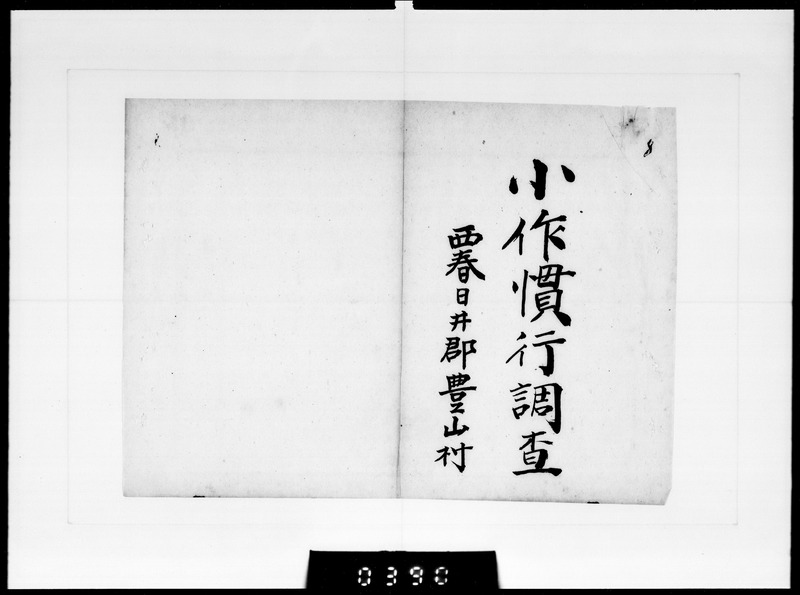 8
小作慣行調査
西春日井郡豊山村
0390